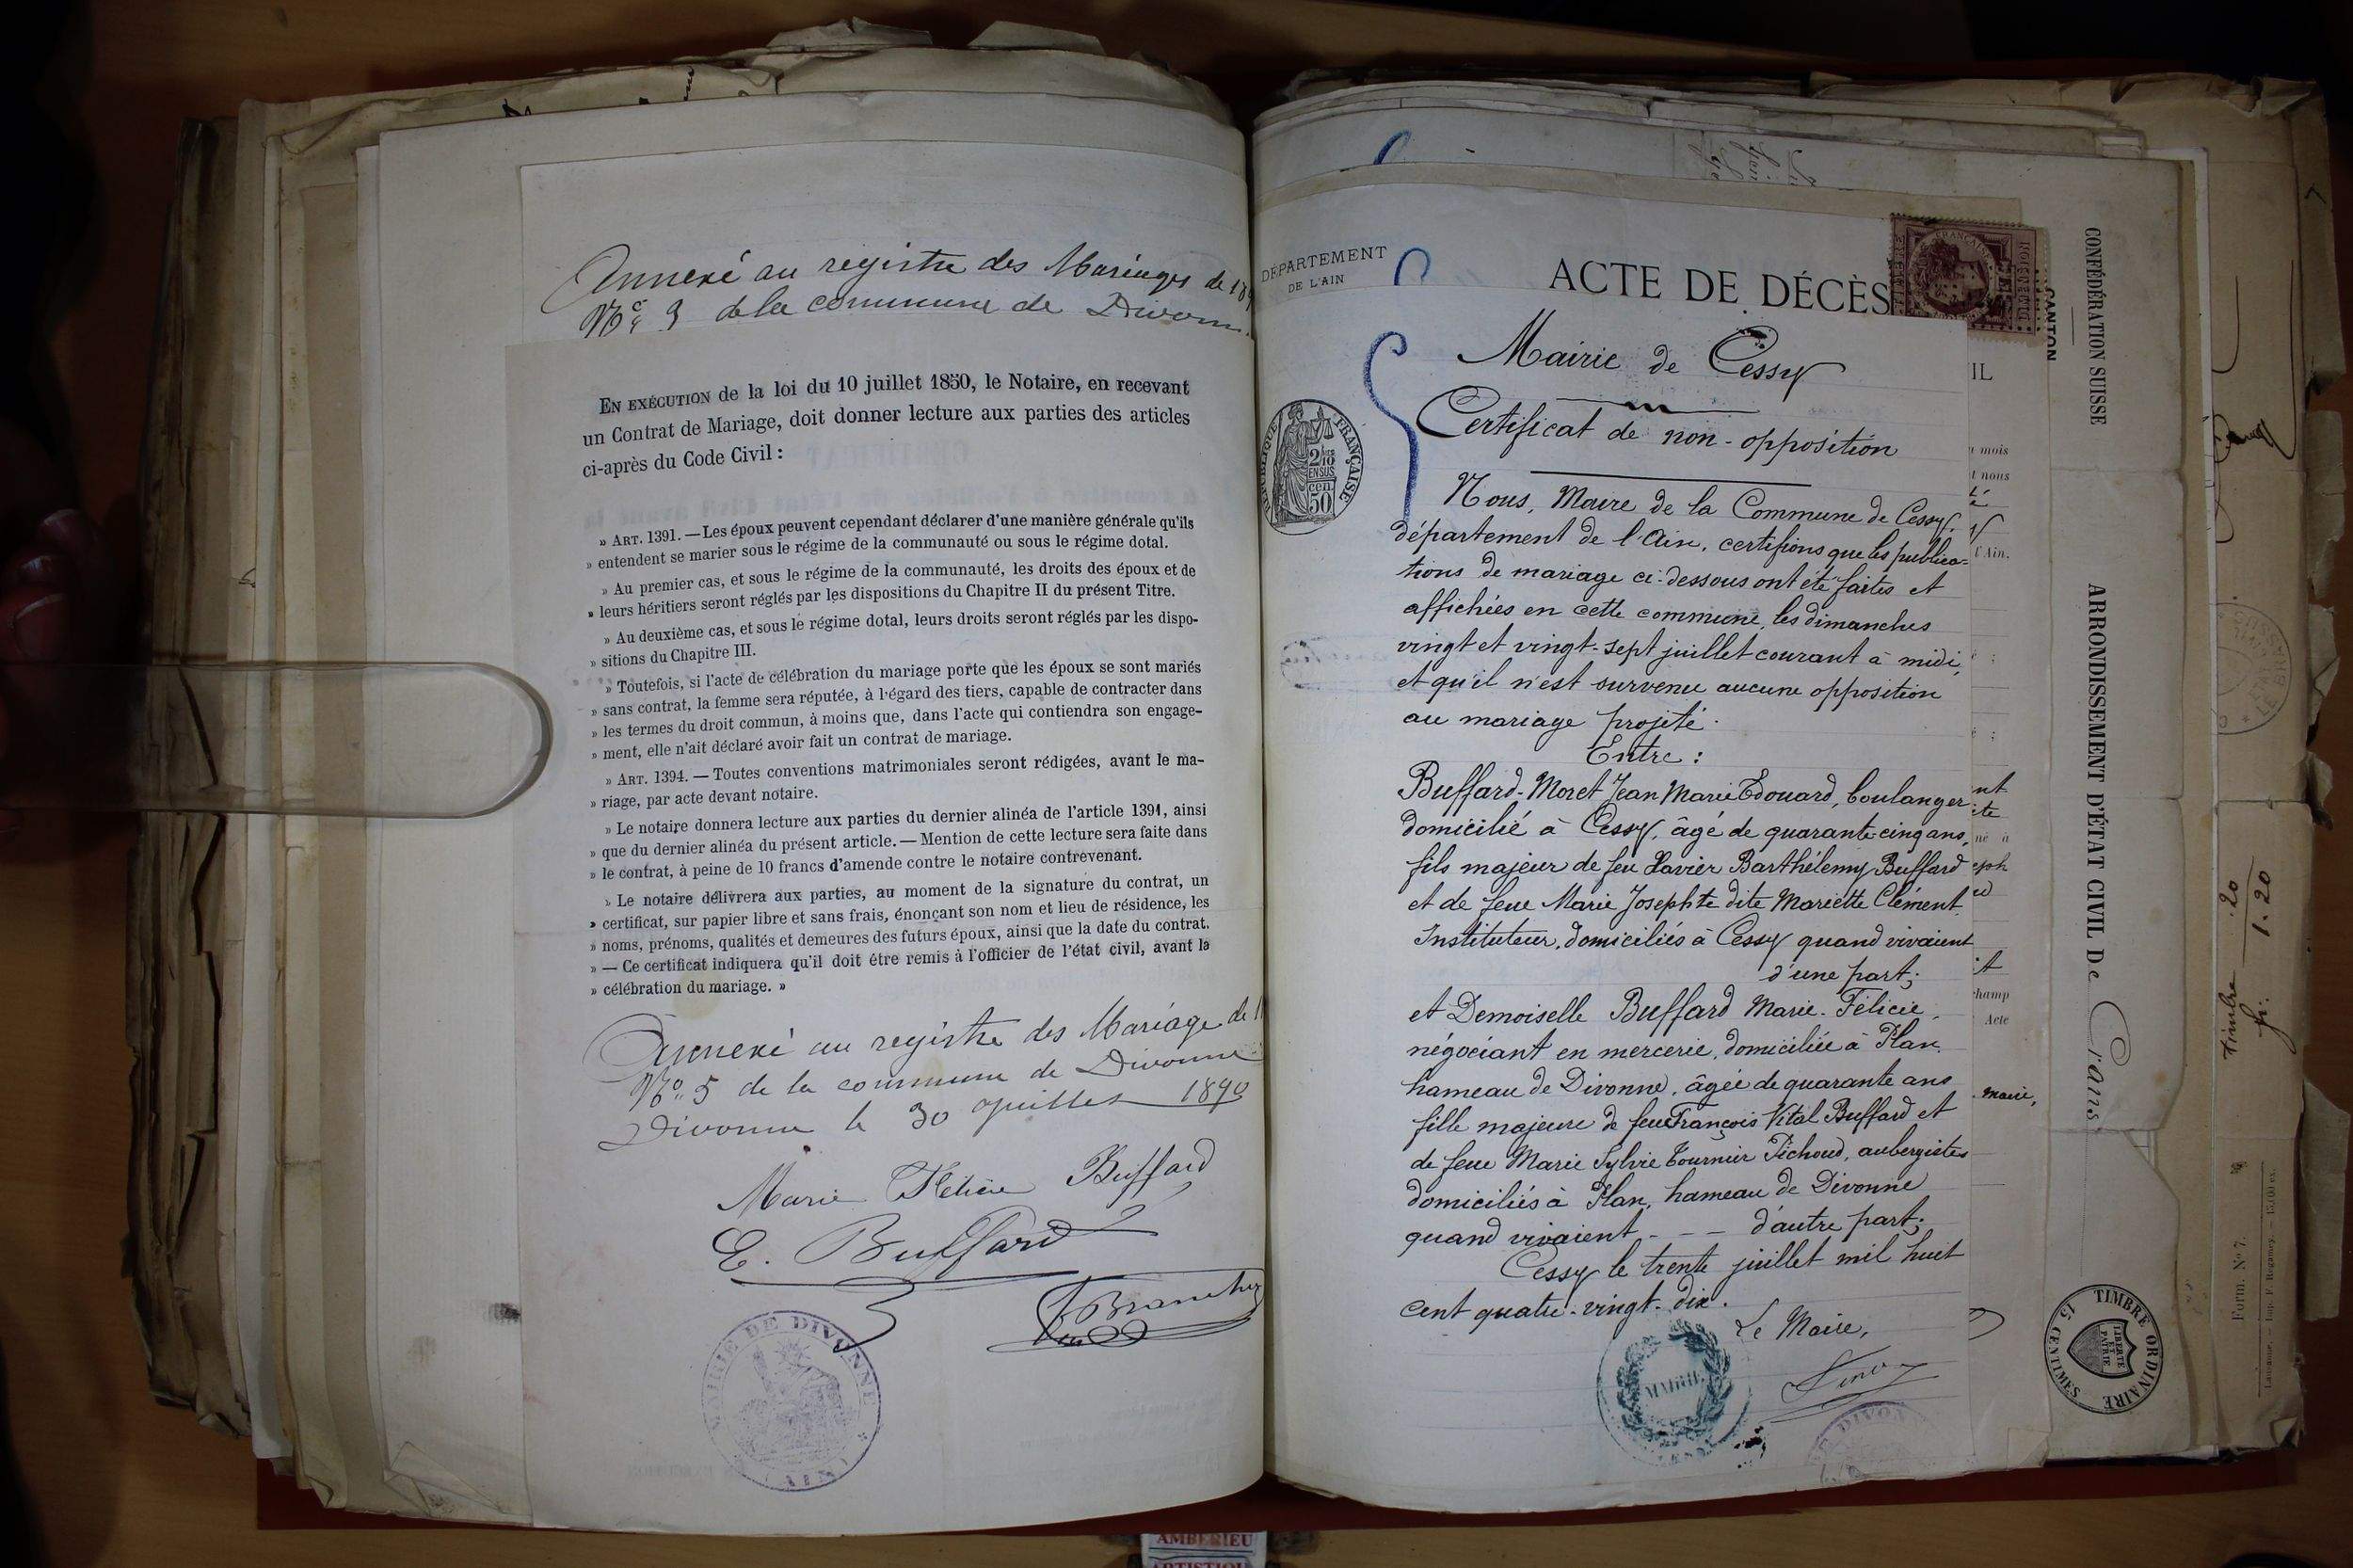 Annexé au registre des Mariages de 189
No 3 de la commune de Divonne
EN EXÉCUTION de la loi du 10 juillet 1850, le Notaire, en recevant
un Contrat de Mariage, doit donner lecture aux parties des articles
ci-après du Code Civil :
» ART. 1391. — Les époux peuvent cependant déclarer d'une manière générale qu'ils
» entendent se marier sous le régime de la communauté ou sous le régime dotal.
» Au premier cas, et sous le régime de la communauté, les droits des époux et de
» leurs héritiers seront réglés par les dispositions du Chapitre II du présent Titre.
» Au deuxième cas, et sous le régime dotal, leurs droits seront réglés par les dispo-
» sitions du Chapitre III.
» Toutefois, si l'acte de célébration du mariage porte que les époux se sont mariés
» sans contrat, la femme sera réputée, à l'égard des tiers, capable de contracter dans
» les termes du droit commun, à moins que, dans l'acte qui contiendra son engage-
» ment, elle n'ait déclaré avoir fait un contrat de mariage.
» ART. 1394. — Toutes conventions matrimoniales seront rédigées, avant le ma-
» riage, par acte devant notaire.
» Le notaire donnera lecture aux parties du dernier alinéa de l'article 1391, ainsi
» que du dernier alinéa du présent article. — Mention de cette lecture sera faite dans
» le contrat, à peine de 10 francs d'amende contre le notaire contrevenant.
» Le notaire délivrera aux parties, au moment de la signature du contrat, un
» certificat, sur papier libre et sans frais, énonçant son nom et lieu de résidence, les
» noms, prénoms, qualités et demeures des futurs époux, ainsi que la date du contrat.
» — Ce certificat indiquera qu'il doit être remis à l'officier de l'état civil, avant la
» célébration du mariage. »
Annexé au registre des Mariage de 1
No 5 de la commune de Divonne
Divonne le 30 Juillet 1890
Marie Félicie Buffard
E. Buffard
MAIRIE DE DIVONNE
(AIN)
DÉPARTEMENT
DE L'AIN
ACTE DE DÉCÈS
RÉPUBLIQUE FRANÇAISE
2/10
EN SUS
50 cen
Mairie de Cessy
Certificat de non-opposition
Nous, Maire de la Commune de Cessy,
département de l'Ain, certifions que les publica-
tions de mariage ci-dessous ont été faites et
affichées en cette commune, les dimanches
vingt et vingt-sept juillet courant à midi,
et qu'il n'est survenu aucune opposition
au mariage projeté.
Entre :
Buffard-Moret Jean Marie Edouard, boulanger
domicilié à Cessy, âgé de quarante cinq ans,
fils majeur de feu Xavier Barthélemy Buffard
et de feue Marie Josephte dite Mariette Clément
Instituteur, domiciliés à Cessy quand vivaient
d'une part ;
et Demoiselle Buffard Marie-Félicie,
négociant en mercerie, domiciliée à Plan,
hameau de Divonne, âgée de quarante ans
fille majeure de feu François Vital Buffard et
de feue Marie Sylvie Tournier Pichoud, aubergistes
domiciliés à Plan, hameau de Divonne
quand vivaient - - - d'autre part ;
Cessy le trente juillet mil huit
cent quatre-vingt-dix.
Le Maire,
MAIRIE
DIVON
IL
mois
nous
l'Ain.
champ
Acte
maire,
CANTON
CONFÉDÉRATION SUISSE
ARRONDISSEMENT D'ÉTAT CIVIL De Crans
TIMBRE ORDINAIRE
15 CENTIMES
LIBERTÉ
ET
PATRIE
Timbre .20
fr. 1.20
Form. No 7.
AMBERIEU